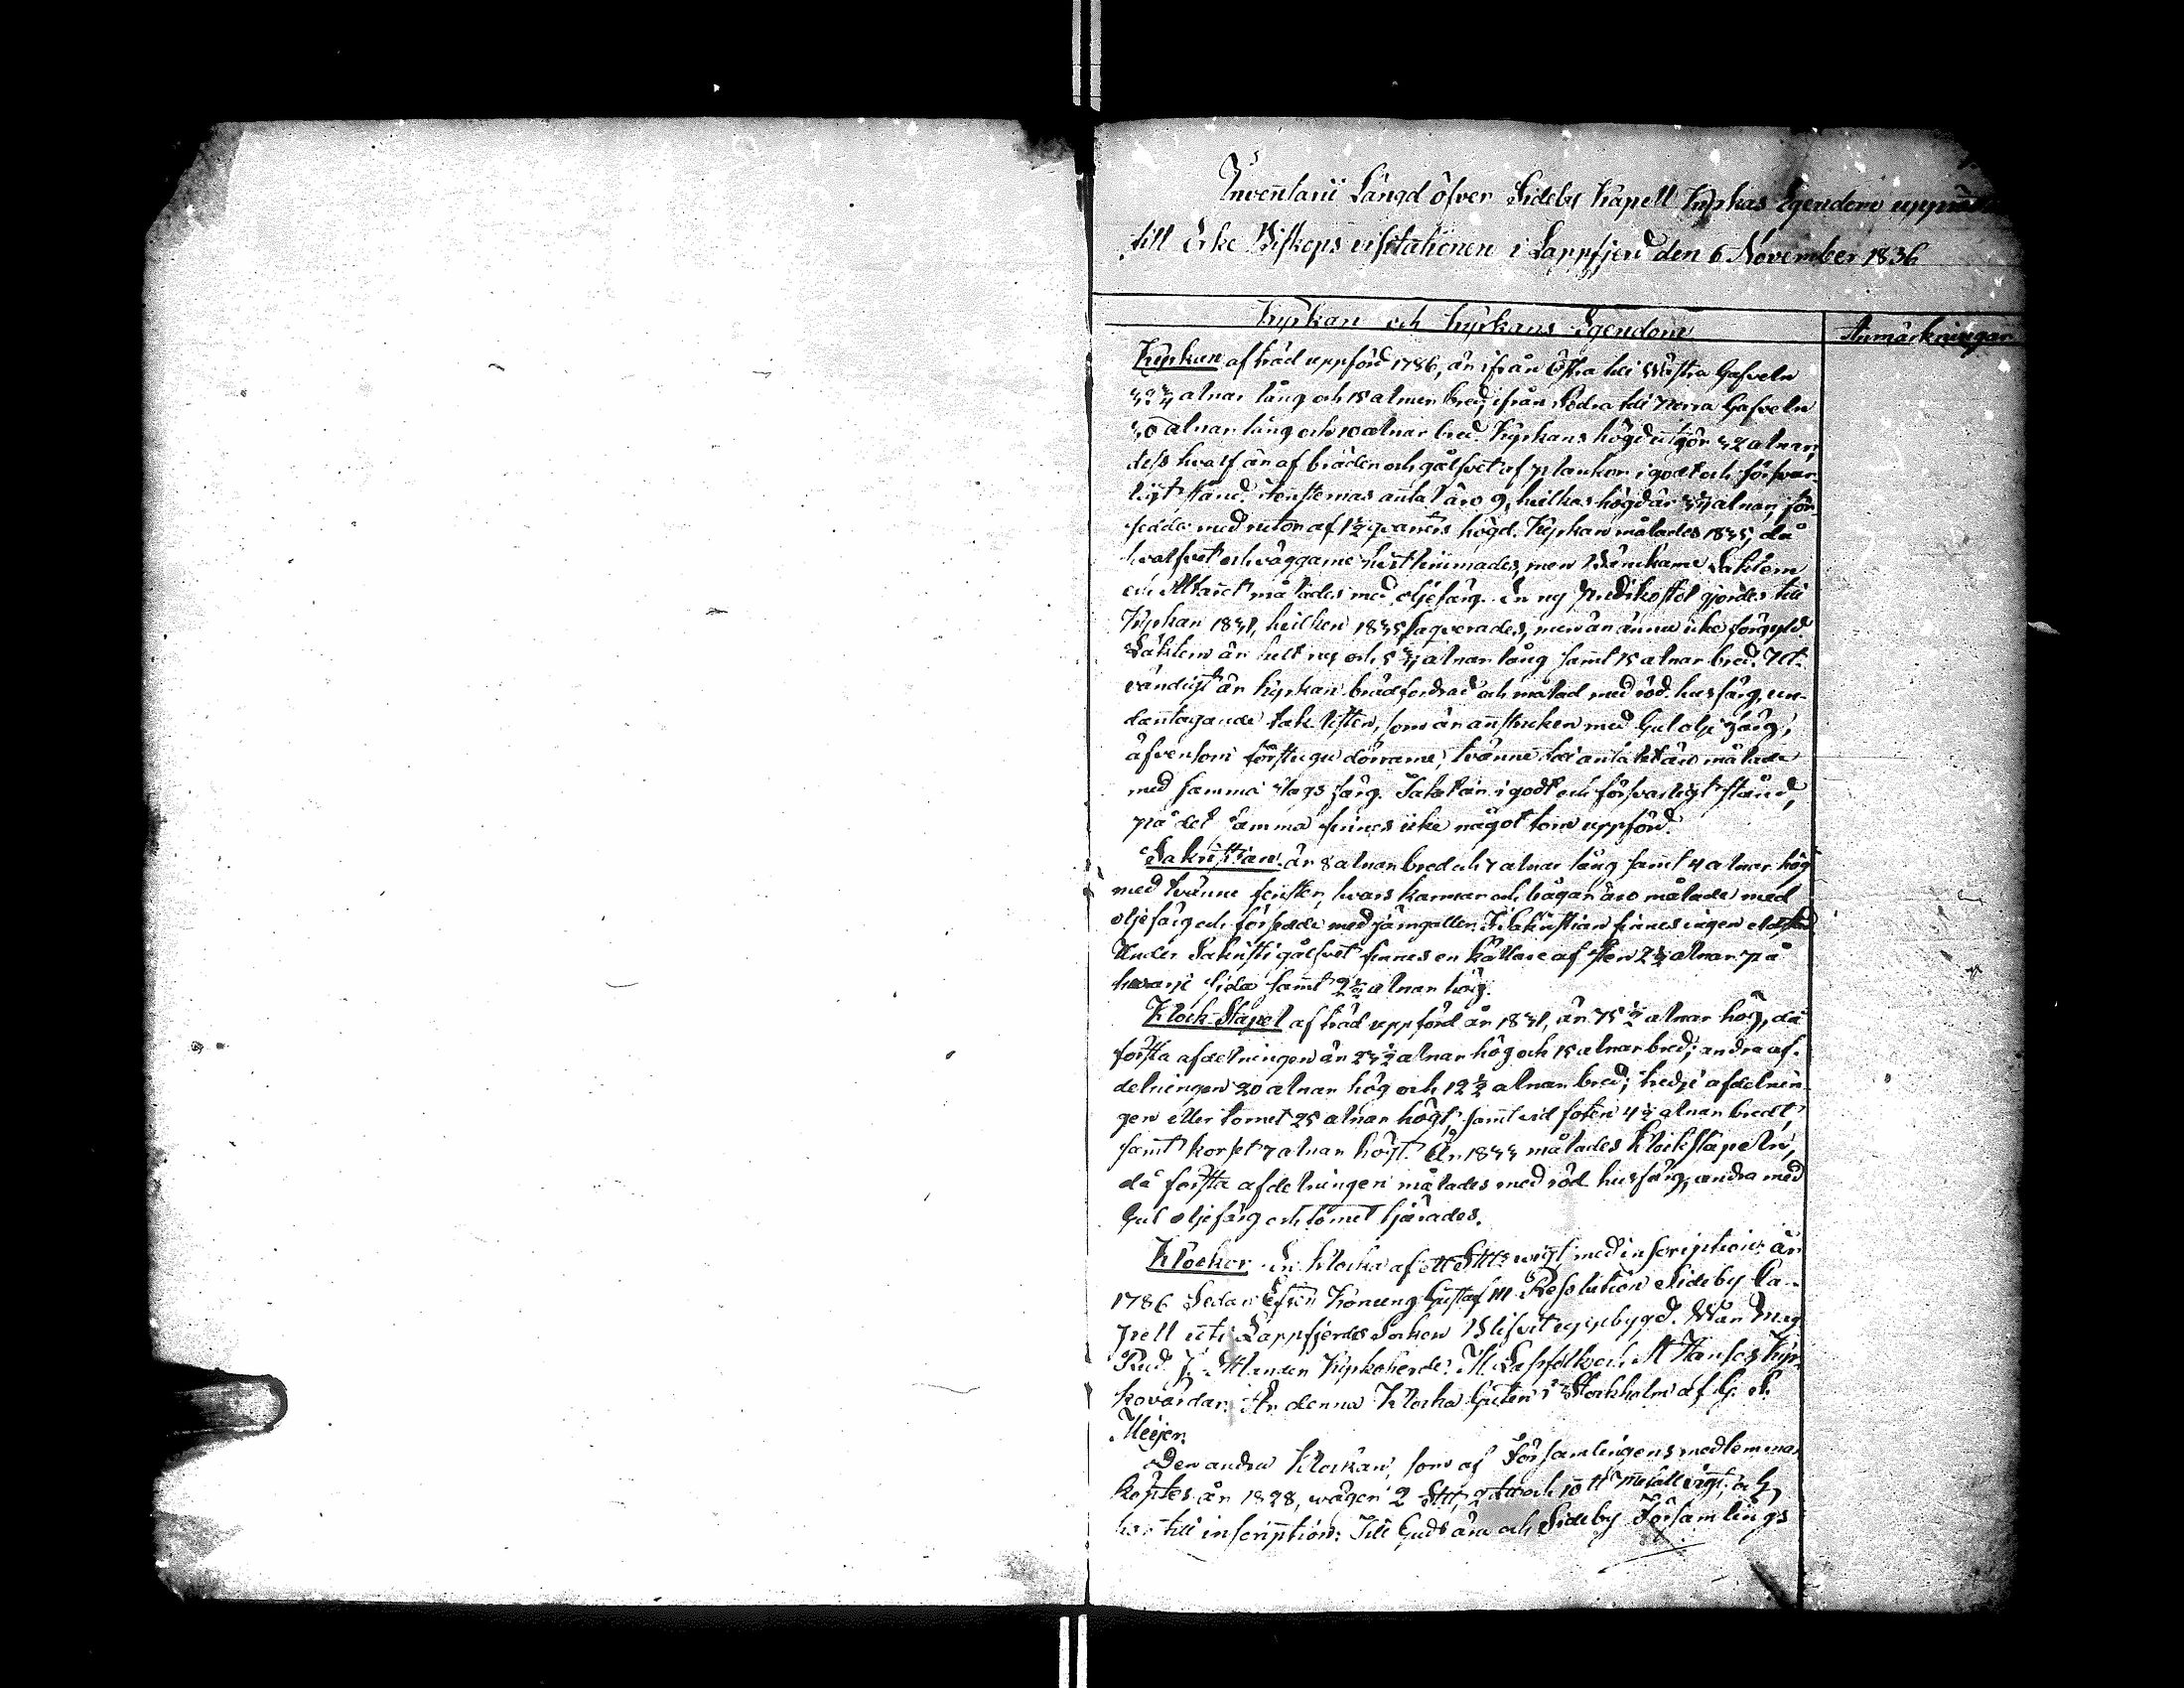 Inventarii Längd öfver Sideby Kapell Kyrkas Egendom
till Erke Biskops visitationen i Lappfjerd den 6 November 1836
Kyrkan och Kyrkans Egendom
Anmärkningar
Kyrkan af träd uppförd 1786, är ifrån Östra till Wästra Gafveln
alnar lång och 18 alnar bred, ifrån Södra till Norra Gafveln
alnar lång och 10 alnar bred. Kyrkans högd utgör alnar,
dess hvalf är af bräder och gålfvet af plankor i godt och försvar-
ligt stånd. Fensternas antal äro 9, hvilkas högd är alnar, för-
sedde med rutor af 1½ qvarters högd. Kyrkan målades 1835, då
hvalfvet och väggarne limmades, men Bänkarne Läktern
och Altaret målades med oljefärg. En ny Predikostol gjordes till
Kyrkan 1831, hvilken 1835 laqverades, men är ännu icke förgyld
Läktern är helt ny och alnar lång samt 15 alnar bred. Ut-
vändigt är Kyrkan brädfodrad och målad med röd husfärg, un-
dantagande taklisten, som är anstruken med Gul olje färg,
äfvensom förstugu dörrarne, tvänne till antalet äro målade
med samma slags färg. Taket är i godt och försvarligt stånd,
på det samma finnes icke något torn uppförd.
Sakristian är 8 alnar bred och 7 alnar lång samt 4 alnar hög
med tvänne fenster, hvars karmar och bågar äro målade med
oljefärg och försedde med järngaller. I Sakristian finnes ingen eldstad
Under Sakristi gålfvet finnes en källare af sten 2½ alnar på
hvarje sida samt 2½ alnar hög.
Klock-Stapel af träd uppförd år 1831, är 75½ alnar hög, då
första afdelningen är 23½ alnar hög och 15 alnar bred; andra af-
delningen 20 alnar hög och 12½ alnar bred; tredje afdelnin-
gen eller tornet 25 alnar högt, samt vid foten 4½ alnar bredt,
samt korset 7 alnar högt. År 1833 målades Klockstapeln,
då första afdelningen målades med röd husfärg, andra med
Gul oljefärg och tornet tjärades.
Klockor. En Klocka af ett wigt med inscription: år
1786 Sedan Efter Konung Gustaf III Resolution Sideby Ca-
pell uti Lappfjerds Socken Blifvit uppbygd. War Mag
Kyrkoherde. M. och M Hanses Kyr-
kovärdar. Är denna Klocka Guten i Stockholm af G. S.
Meijer.
Den andra Klockan, som af Församlingens medlemmar
köptes år 1828, wäger 2 och 10 ℔ metall wigt, och
har till inscription: Till Guds ära och Sideby Församlings